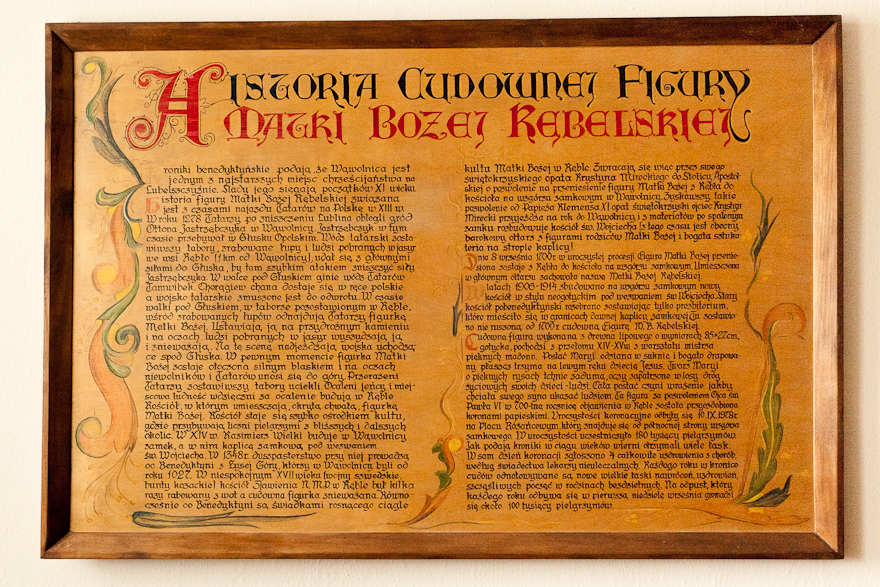 Historia Cudownej Figury
Matki Bożej Kębelskiej
Kroniki benedyktyńskie podają, że Wąwolnica jest
jednym z najstarszych miejsc chrześcijaństwa na
Lubelszczyźnie. Ślady jego sięgają początków XI wieku
Historia figury Matki Bożej Kębelskiej związana
jest z czasami najazdu Tatarów na Polskę w XIII w.
W roku 1278 Tatarzy po zniszczeniu Lublina oblegli gród
Ottona Jastrzębczyka w Wąwolnicy. Jastrzębczyk w tym
czasie przebywał w Głusku Opolskim. Wódz tatarski zosta-
wiwszy tabory, zrabowane łupy i ludzi pobranych w jasyr
we wsi Kębło (1km od Wąwolnicy), udał się z głównymi
siłami do Głuska, by tam szybkim atakiem zniszczyć siły
Jastrzębczyka. W walce pod Głuskiem ginie wódz Tatarów
Tamwibek. Chorągiew chana dostaje się w ręce polskie
a wojsko tatarskie zmuszone jest do odwrotu. W czasie
walki pod Głuskiem, w taborze pozostawionym w Kęble,
wśród zrabowanych łupów odnajdują Tatarzy figurkę
Matki Bożej. Ustawiają ją na przydrożnym kamieniu
i na oczach ludzi pobranych w jasyr wyszydzają ją
i znieważają. Na tę scenę nadjeżdżają wojska uchodzą-
ce spod Głuska. W pewnym momencie figurka Matki
Bożej zostaje otoczona silnym blaskiem i na oczach
niewolników i Tatarów unosi się do góry. Przerażeni
Tatarzy zostawiwszy tabory uciekli. Ocaleni jeńcy i miej-
scowa ludność wdzięczni za ocalenie budują w Kęble
Kościół, w którym umieszczają, okrytą chwałą, figurkę
Matki Bożej. Kościół staje się szybko ośrodkiem kultu,
gdzie przybywają liczni pielgrzymi z bliższych i dalszych
okolic. W XIV w. Kazimierz Wielki buduje w Wąwolnicy
zamek, a w nim kaplicę zamkową, pod wezwaniem
św. Wojciecha. W 1348r. duszpasterstwo przy niej prowadzą
oo Benedyktyni z Łysej Góry, którzy w Wąwolnicy byli od
roku 1027. W niespokojnym XVII wieku (wojny szwedzkie,
bunty kozackie) kościół Zjawienia N.M.P. w Kęble był kilka
razy rabowany z wot a cudowna figurka znieważana. Równo-
cześnie oo Benedyktyni są świadkami rosnącego ciągle
kultu Matki Bożej w Kęble. Zwracają się więc przez swego
świętokrzyskiego opata Krystyna Mireckiego do Stolicy Apostol-
skiej o pozwolenie na przeniesienie figury Matki Bożej z Kębła do
kościoła na wzgórzu zamkowym w Wąwolnicy. Zyskawszy takie
pozwolenie od Papieża Klemensa XI opat świętokrzyski ojciec Krystyn
Mirecki przyjeżdża na rok do Wąwolnicy i z materiałów po spalonym
zamku rozbudowuje kościół św. Wojciecha (z tego czasu jest obecny
barokowy ołtarz z figurami rodziców Matki Bożej i bogata sztuka-
teria na stropie kaplicy)
Dnia 8 września 1700r. w uroczystej procesji figura Matki Bożej przenie-
siona zostaje z Kębła do kościoła na wzgórzu zamkowym. Umieszczona
w głównym ołtarzu zachowała nazwę Matki Bożej Kębelskiej.
W latach 1906-1914 zbudowano na wzgórzu zamkowym nowy
kościół w stylu neogotyckim pod wezwaniem św. Wojciecha. Stary
kościół pobenedyktyński rozebrano zostawiając tylko prezbiterium,
które mieściło się w granicach dawnej kaplicy zamkowej. Tu zostawio-
no nie ruszoną, od 1700r. cudowną Figurę M.B. Kębelskiej.
Cudowna figura wykonana z drewna lipowego o wymiarach 85×27cm,
gotycka, pochodzi z przełomu XIV-XV w. z warsztatu mistrza
pięknych madonn. Postać Maryi odziana w suknię i bogato drapowa-
ny płaszcz trzyma na lewym ręku dziecię Jezus. Twarz Maryi
o pięknych rysach tchnie zadumą, oczy zapatrzone w losy dróg
życiowych swoich dzieci-ludzi. Cała postać czyni wrażenie jakby
chciała swego syna ukazać ludziom. Ta figura za pozwoleniem Ojca św.
Pawła VI w 700-tną rocznicę objawienia w Kęble została przyozdobiona
koronami papieskimi. Uroczystości koronacyjne odbyły się 10.IX.1978r.
na Placu Różańcowym, który znajduje się od północnej strony wzgórza
zamkowego. W uroczystości uczestniczyło 180 tysięcy pielgrzymów.
Jak podają kroniki w ciągu wieków wierni otrzymali wiele łask.
W sam dzień koronacji zgłoszono 4 całkowite uzdrowienia z chorób,
według świadectwa lekarzy nieuleczalnych. Każdego roku w kronice
cudów odnotowywane są nowe wielkie łaski nawróceń, uzdrowień,
szczęśliwych poczęć w rodzinach bezdzietnych. Na odpust, który
każdego roku odbywa się w pierwszą niedzielę września gromadzi
się około 100 tysięcy pielgrzymów.